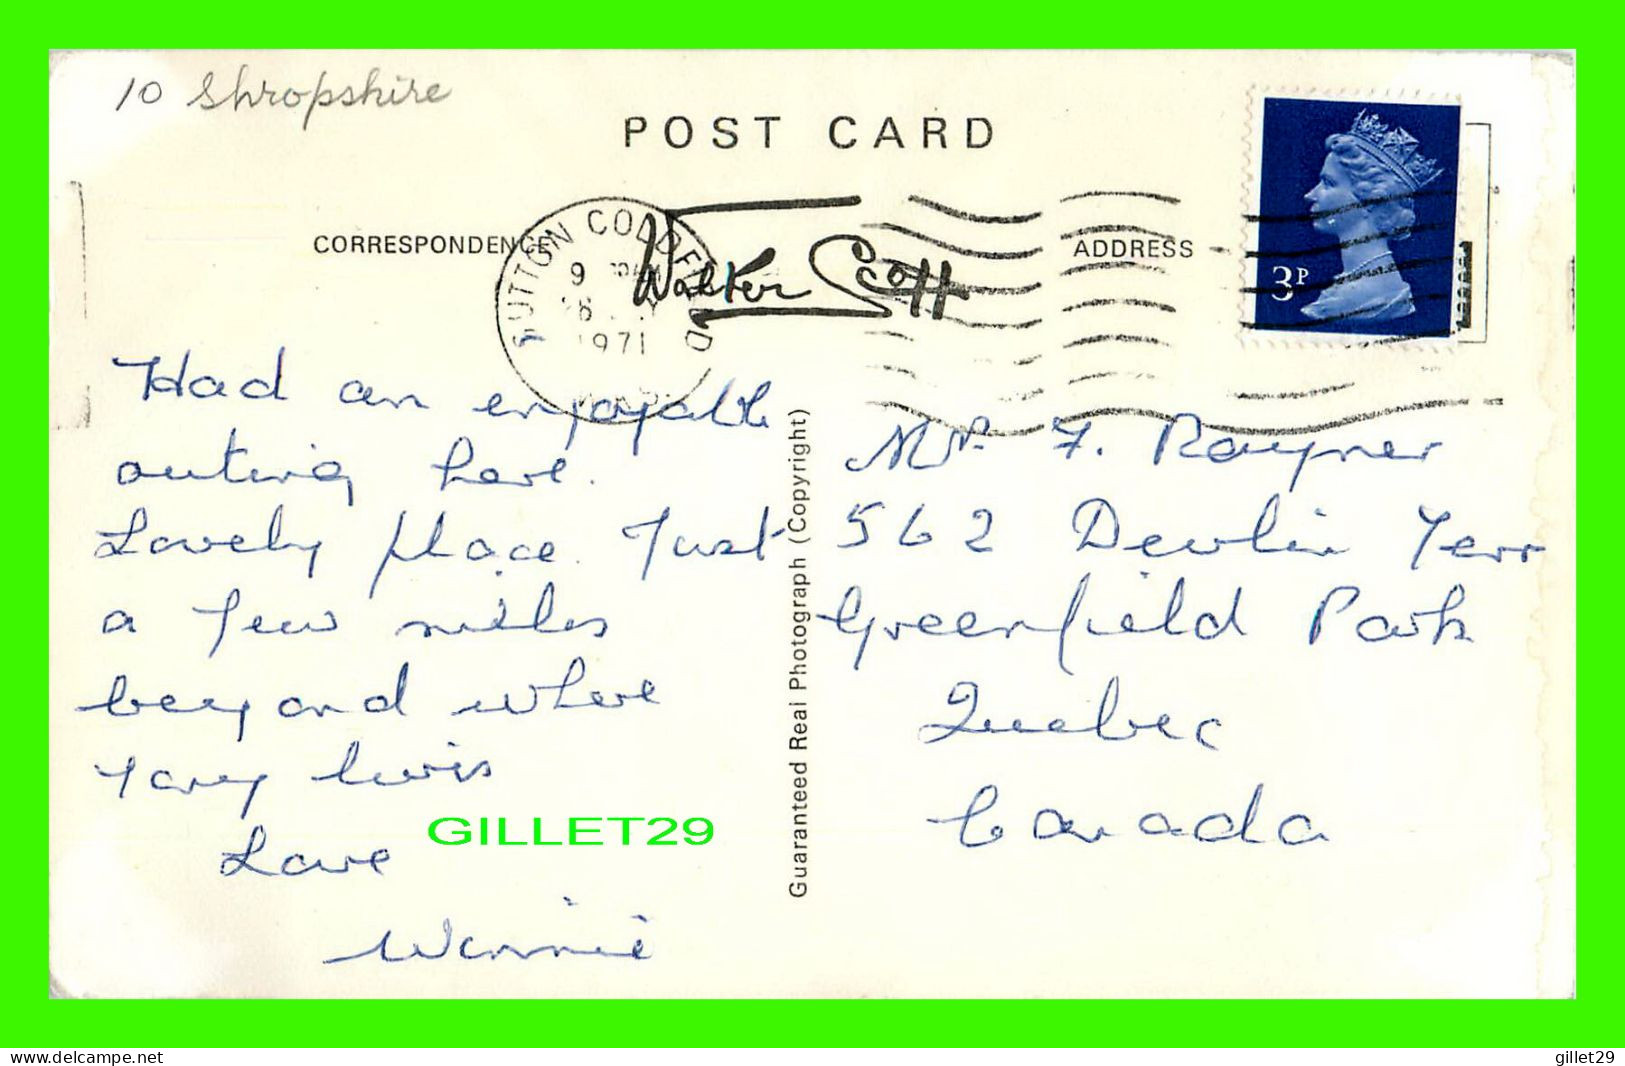 10 Shropshire
POST CARD
CORRESPONDENCE
ADDRESS
SUTTON COLDFIELD
9
1971
Walter Scott
3P
Had an enjoyable
outing here.
Lovely place. Just
a few miles
beyond where
Tony lives
Love
Winnie
GILLET29
Guaranteed Real Photograph (Copyright)
Mr. F. Rayner
562 Devlin Terr
Greenfield Park
Quebec
Canada
www.delcampe.net
gillet29